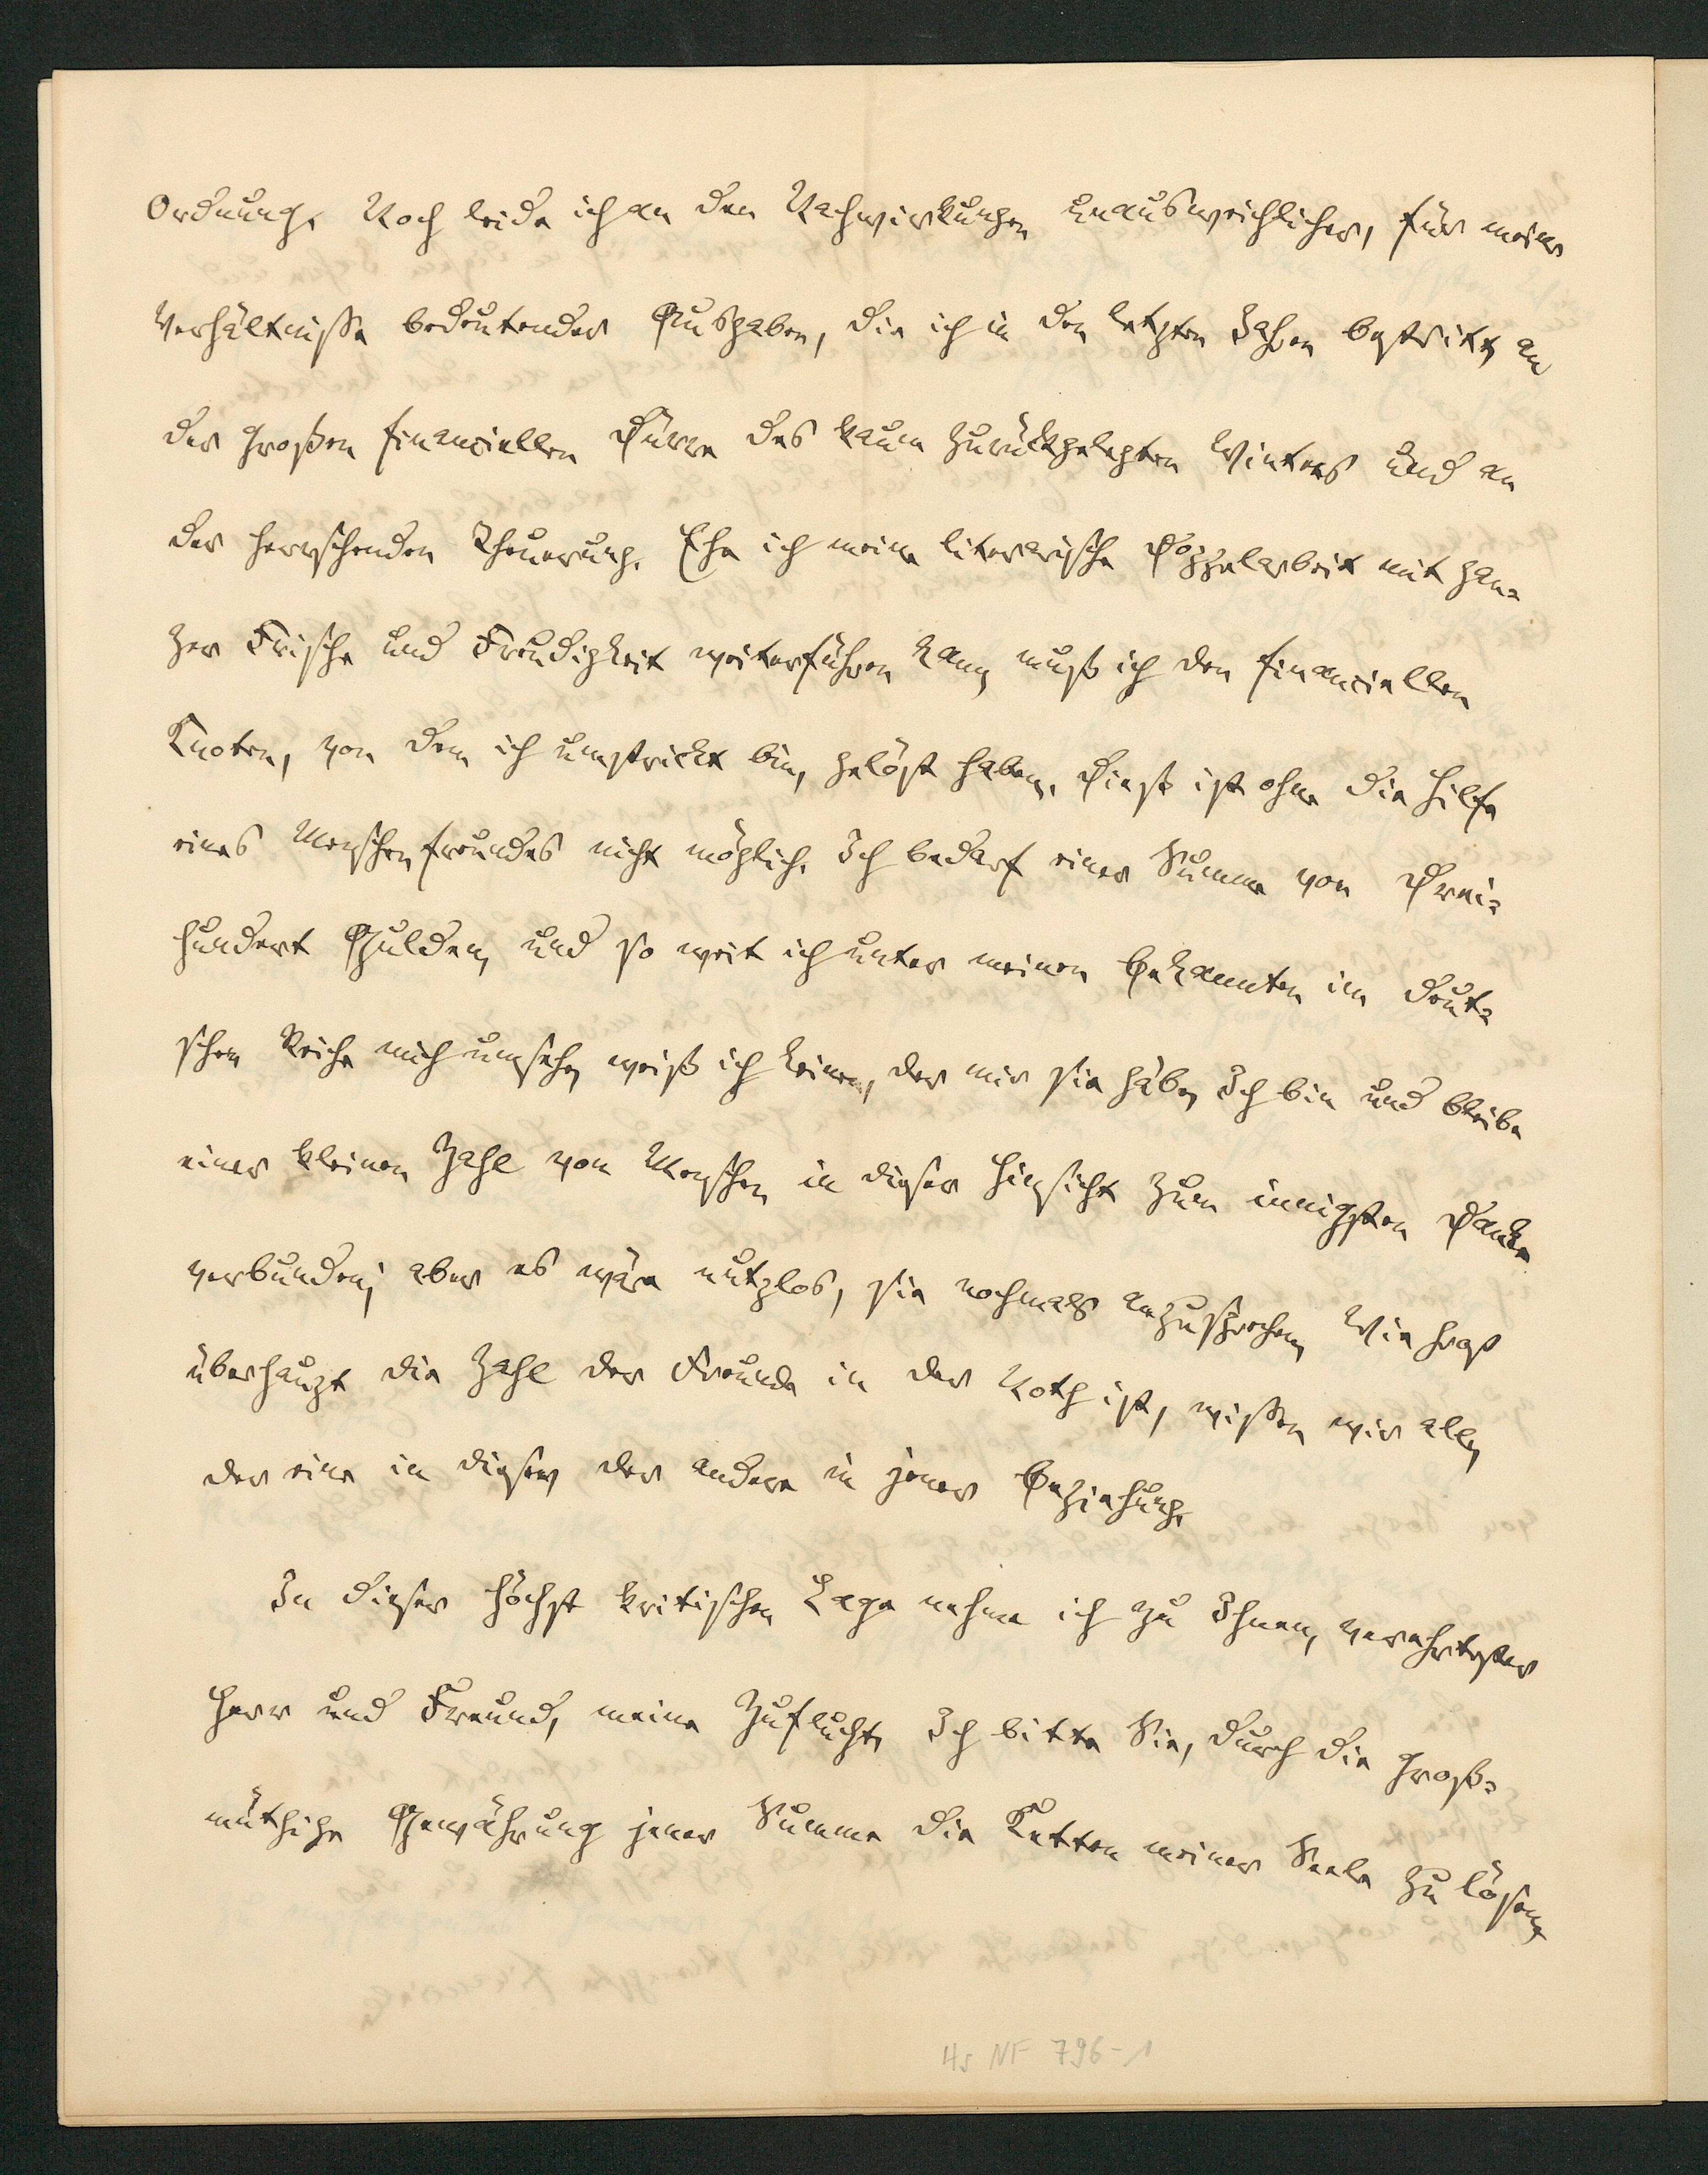 Ordnung. Noch leide ich an den Nachwirkungen unausweichlicher, für meine
Verhältnisse bedeutender Ausgaben, die ich in den letzten Jahren bestritt, an
der großen finanziellen Dürre des kaum zurückgelegten Winters und an
der herrschenden Theuerung. Ehe ich meine literarische Doppelarbeit mit gan=
zer Frische und Freudigkeit weiterführen kann, muß ich den finanziellen
Knoten, von dem ich umstrickt bin, gelöst haben. Dieß ist ohne die Hilfe
eines Menschenfreundes nicht möglich. Ich bedarf einer Summe von Drei=
hundert Gulden, und so weit ich unter meinen Bekannten im deut=
schen Reiche mich umsehe, weiß ich keinen, der mir sie gäbe. Ich bin und bleibe
einer kleinen Zahl von Menschen in dieser Hinsicht zum innigsten Danke
verbunden; aber es wäre nutzlos, sie nochmals anzusprechen. Wie
überhaupt die Zahl der Freunde in der Noth ist, wissen wir alle,
der eine in dieser, der andere in jener Beziehung.
In dieser höchst kritischen Lage nehme ich zu Ihnen, verehrtester
Herr und Freund, meine Zuflucht. Ich bitte Sie, durch die groß=
müthige Gewährung jener Summe die Ketten meiner Seele zu lösen,
Hs NF 796-1